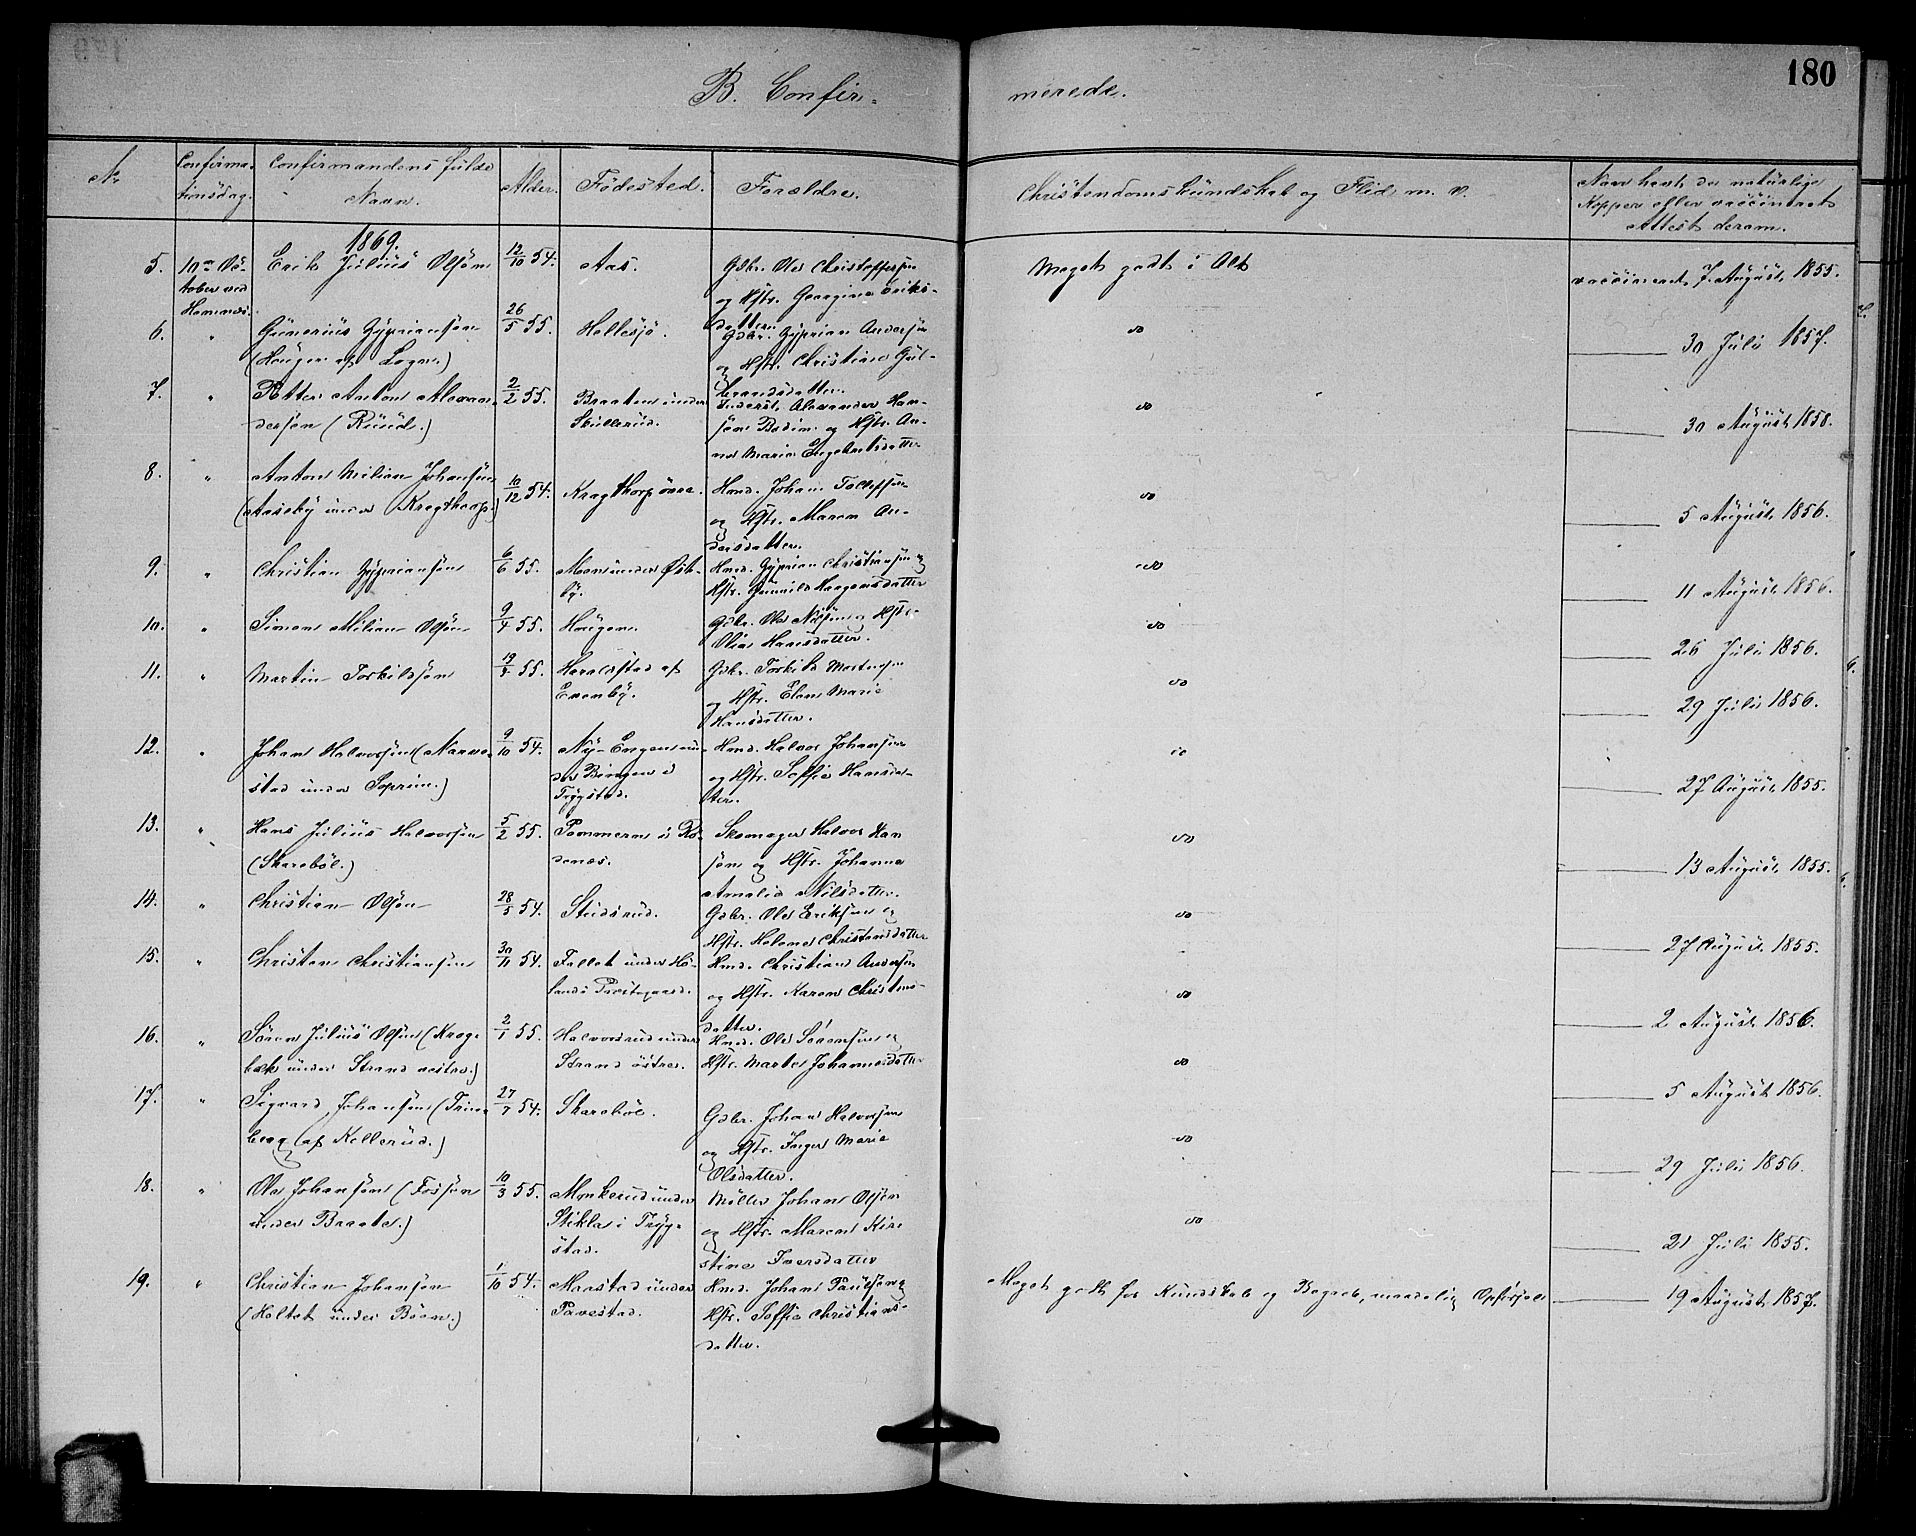 180
B. Confirmerede.
No
Confirmationsdag.
Confirmandens fulde Navn.
Alder.
Fødested.
Forældre.
Christendomskundskab og Flid m. v.
Naar havt de naturlige Kopper eller vaccineret Attest derom.
1869.
5. 10de October ved Hemnæs. Erik Julius Olsøn 12/10 54. Aas. Gdbr. Ole Christoffersøn og Hstr. Georgine Eriksdatter. Meget godt i Alt vaccineret 7 August 1855.
6. " Gunerius Gyprianson (Haugen af Logn.) 26/5 55. Hellesjø. Gdbr. Gyprian Andersøn og Hstr. Christine Gulbrandsdatter. do 30 Juli 1857.
7. " Petter Anton Alexandersøn (Ruud.) 2/2 55. Braaten under Skullerud. Inderst Alexander Hansøn og Hstr. Anne Marie Engebretsdatter do 30 August 1858.
8. " Anton Milian Johansøn (Aaseby under Kragthorp.) 10/12 54. Kragthorp øvre. Hmd. Johan Tollefsøn og Hstr. Maren Andersdatter. do 5 August 1856.
9. " Christian Gypriansøn 6/6 55. Moen under Østby. Hmd. Gyprian Christiansøn og Hstr. Gunnild Haagensdatter do 11 August 1856.
10. " Simen Milian Olsøn 9/4 55. Haugen. Gdbr. Ole Nilsøn og Hstr. Olia Hansdatter. do 26 Juli 1856.
11. " Martin Torkildsøn 19/4 55. Haraldstad af Evenby. Gdbr. Torkild Mortensøn og Hstr. Elene Marie Hansdatter. do 29 Juli 1856.
12. " Johan Halvorsøn (Narvestad under Soprim.) 9/10 54. Ny-Engen under Bingen i Trygstad. Hmd. Halvor Johansøn og Hstr. Soffie Hansdatter. do 27 August 1855.
13. " Hans Julius Halvorsøn (Skarebøl.) 5/2 55. Pommern i Rødenæs. Skomager Halvor Hansøn og Hstr. Johanne Amalia Nilsdatter. do 13 August 1855.
14. " Christian Olsøn 28/5 54. Studsrud. Gdbr. Ole Eriksøn og Hstr. Helene Christensdatter do 27 August 1855.
15. " Christen Christiansøn 30/11 54. Fallet under Hølands Præstegaard. Hmd. Christian Andersøn og Hstr. Karen Christensdatter. do 2 August 1856.
16. " Søren Julius Olsøn (Kragbæk under Strand vestre.) 2/1 55. Halvorsrud under Strand østre. Hmd. Ole Sørensøn og Hstr. Marte Johannesdatter do 5 August 1856.
17. " Sigvard Johansøn (Trineborg af Kollerud.) 27/7 54. Skarebøl. Gdbr. Johan Halvorsøn og Hstr. Inger Marie Olsdatter. do 29 Juli 1856.
18. " Ole Johansøn (Fossøn under Braate.) 10/3 55. Monkerud under Stikla i Trygstad. Møller Johan Olsøn og Hstr. Maren Kirstine Iversdatter do 21 Juli 1855.
19. " Christian Johansøn (Holtet under Böen.) 1/10 54. Maastad under Pavestad. Hmd. Johan Paulsøn og Hstr. Soffie Christiansdatter. Meget godt for Kundskab og Begreb, maadelig Opførsel 19 August 1857.